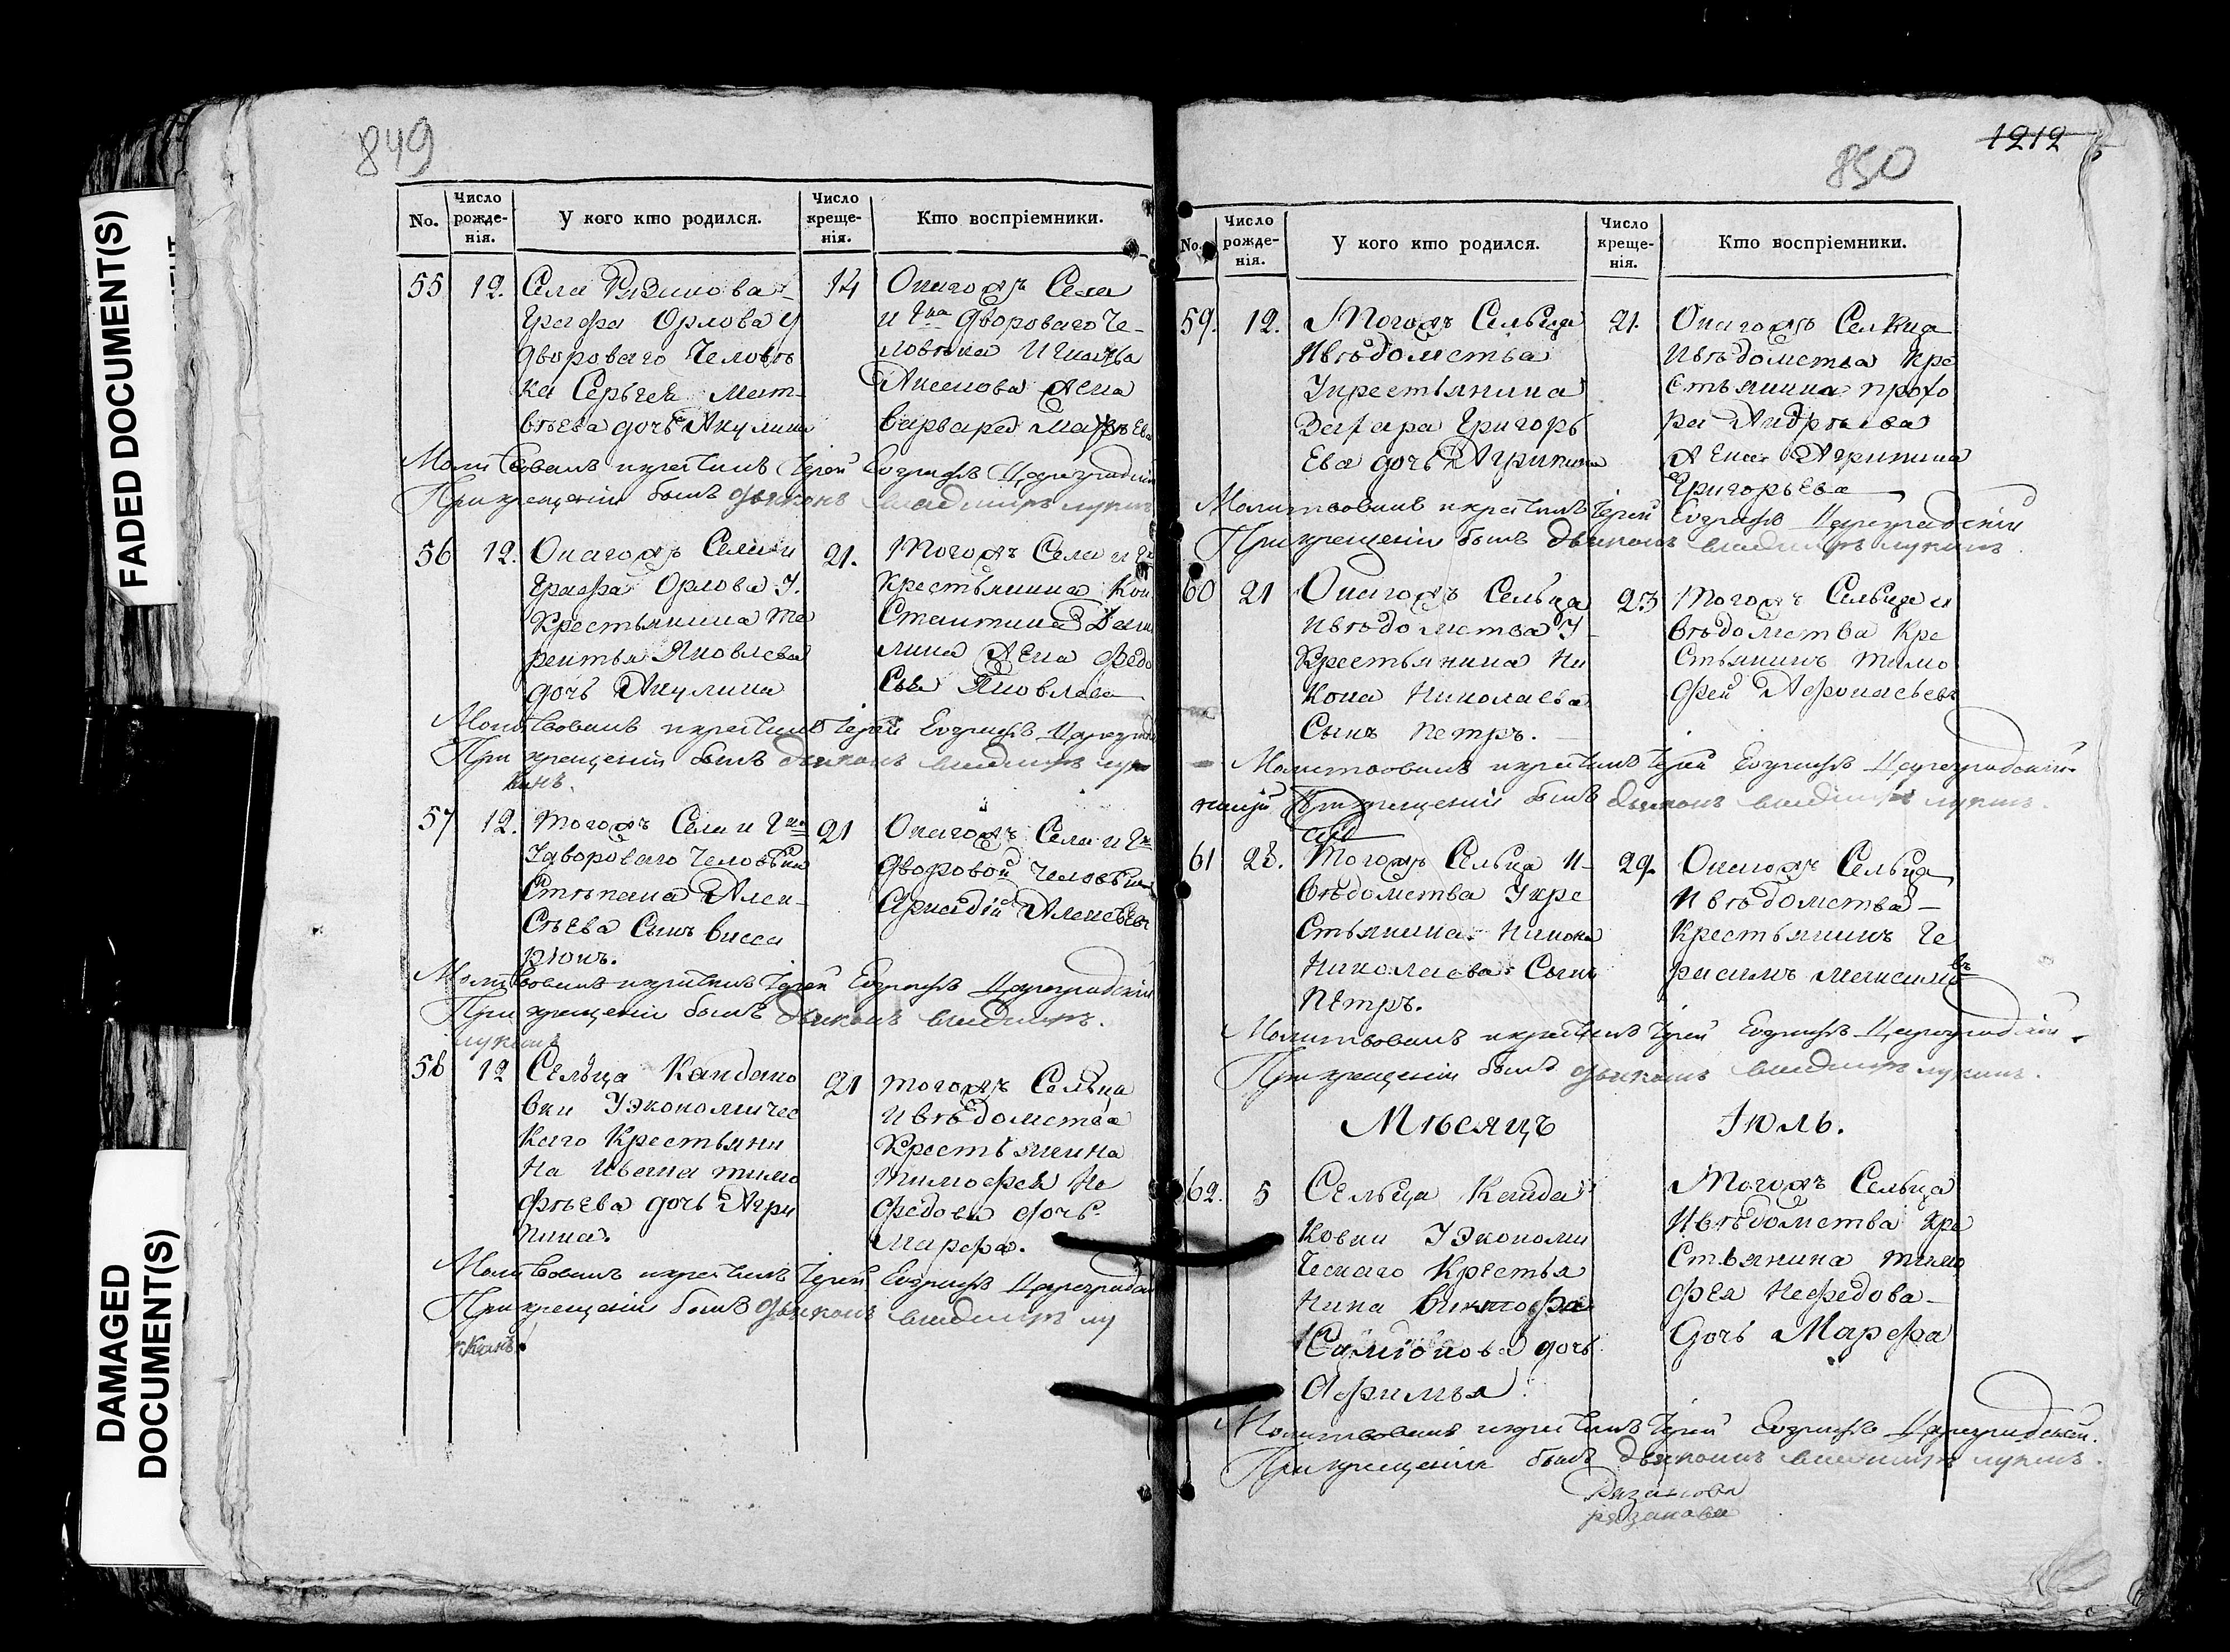 849
No.
Число рожде-нія.
У кого кто родился.
Число креще-нія.
Кто воспріемники.
55 12. Села
Графа Орлова У
двороваго Человѣ
ка Сергѣея Мат-
вѣева дочь Акулина
14
Онагожъ Села
и Гна двороваго Че-
ловѣка Игнатьа
Аксенова Жена
Варвара
Молитвовалъ икрестилъ Іерей Евграфъ Цареградскій
При крещеніи былъ дьяконъ владимиръ лукинъ
56 12. Онагожъ Села и
Графа Орлова У.
Крестьянина Те
рентья Яковлева
дочь Акулина
21.
Тогожъ Села и Гна
Крестьянина Кон
стантина
лина Жена Федо
сья Яковлева
Молитвовалъ икрестилъ Іерей Евграфъ Цареград
При крещеніи былъ дьяконъ владимиръ лу
кинъ.
57 12. Тогожъ Села и Гна
Удвороваго Человѣка
Степана Алек-
сѣева Сынъ Висса
ріонъ.
21
Онагожъ Села и Гна
дворовой Человѣкъ
Аркадій Алексѣевъ
Молитвовалъ икрестилъ Іерей Евграфъ Цареградскій
При крещеніи былъ дьяконъ владимиръ.
лукинъ
58 12 Сельца Кайдако
вки Уэкономичес
каго Крестьяни
на Ивана тимо
фѣева дочь Агри
пина.
21
тогожъ Сельца
ивѣдомства
Крестьянина
тимофея Не
федова дочь
Марфа.
Молитвовалъ икрестилъ Іерей Евграфъ Цареградск
При крещеніи былъ дьяконъ владимиръ лу
кинъ.
1212
850
No.
Число рожде-нія.
У кого кто родился.
Число креще-нія.
Кто воспріемники.
59. 12. Тогожъ Сельца
ивѣдомства
Укрестьянина
Захара Григорь
ева дочь Агрипина
21.
Онагожъ Селица
ивѣдомства кре
стьянина прохо
ра Андрѣева
Жена Агрипина
Григорьева
Молитвовалъ икрестилъ Іерей Евграфъ Цареградскій
При крещеніи былъ дьяконъ владимиръ лукинъ.
60 21 Онагожъ Сельца
ивѣдомства У
Крестьянина Ни
кона Николаева
Сынъ Петръ.
23
Тогожъ Сельца и
вѣдомства Кре
стьянинъ тимо
фей Афонасьевъ
Молитвовалъ икрестилъ Іерей Евграфъ Цареградскій.
При крещеніи былъ дьяконъ владимиръ лукинъ.
61 28. Тогожъ Сельца и-
вѣдомства Укре
стьянина Никона
Николаева Сынъ
Петръ.
29.
Онагожъ Сельца
ивѣдомства
Крестьянинъ Ге
расимъ Максимовъ
Молитвовалъ икрестилъ Іерей Евграфъ Цареградскій.
При крещеніи былъ дьяконъ владимиръ лукинъ.
Мѣсяцъ Іюль.
62. 5 Сельца Кайда
ковки Уэкономи
ческаго Крестья
нина
дочь
Афимья.
Тогожъ Сельца
ивѣдомства кре
стьянина тимо
фея Нефедова
дочь Марфа
Молитвовалъ икрестилъ Іерей Евграфъ Цареградскій.
При крещеніи былъ дьяконъ владимиръ лукинъ.
Рязанова
рязанова
FADED DOCUMENT(S)
DAMAGED
DOCUMENT(S)